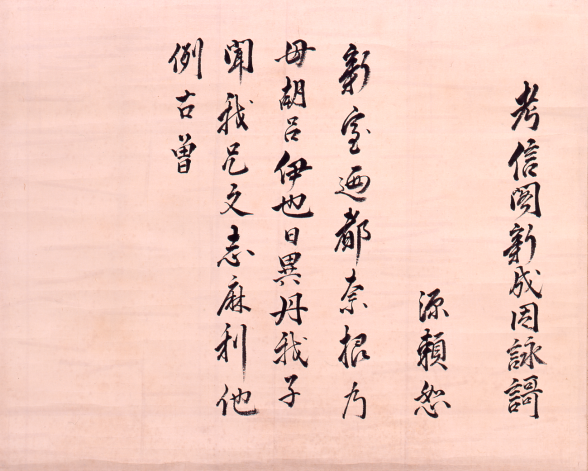 考信閣新成因詠謌
源頼恕
新室迺都奈根乃
毋胡呂伊也日異丹我子
聞我兄文志麻利他
例古曽